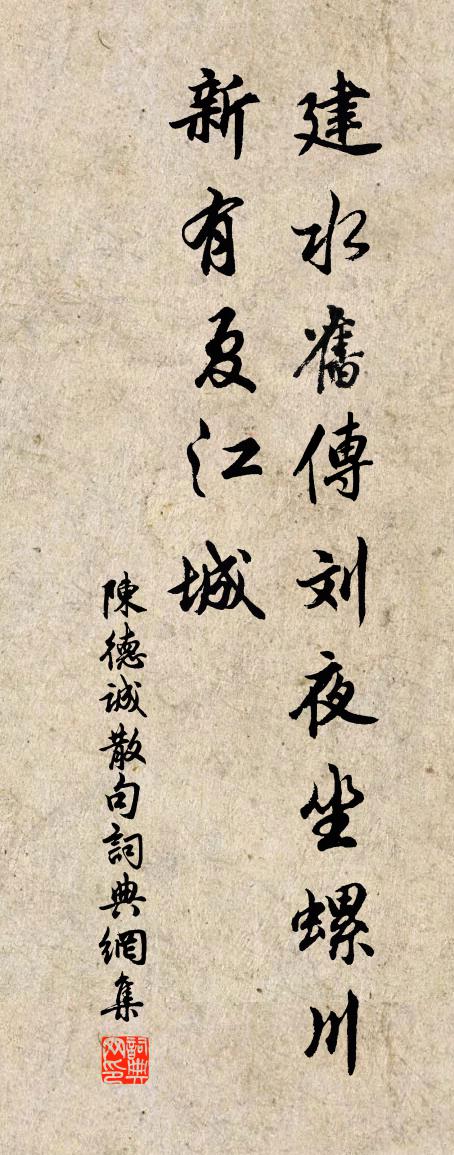 建水舊傳刘夜坐螺川
新有夏江城
陳德诚散句詞典網集
詞典网印